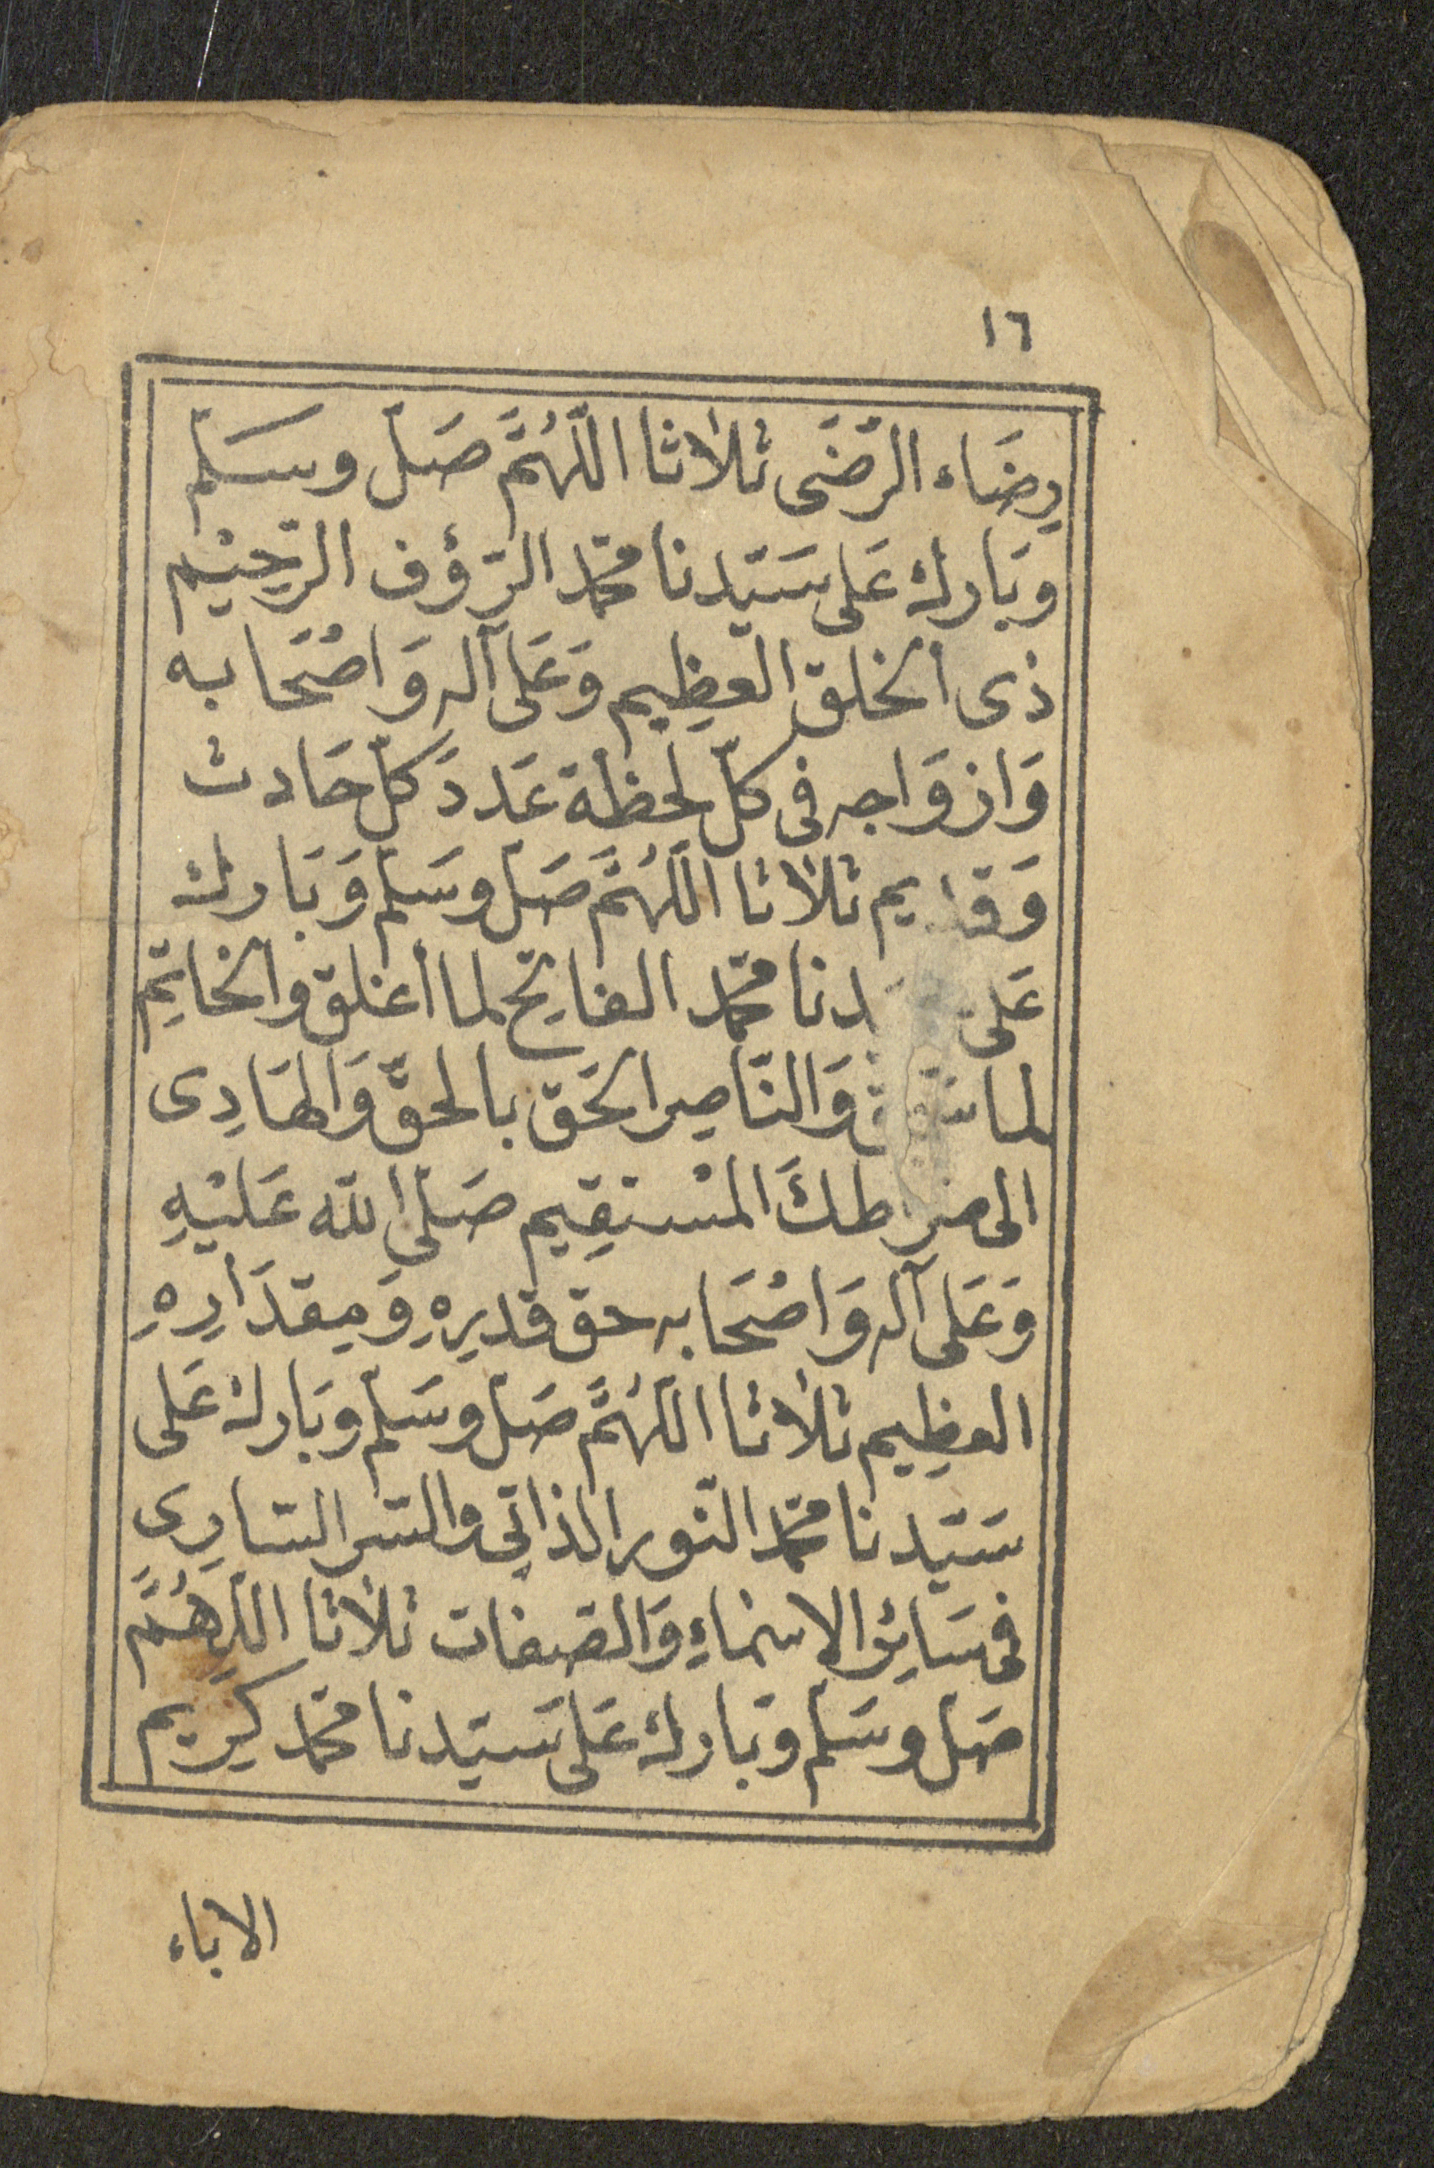 ١٦
رِضَاء الرّضَى ثلاثا اللّهُمَّ صَلّ وسَلّم
وبَارك عَلى سَيّدنا محمّد الرّؤف الرّحِيْم
ذى الخلق العظِيم وَعَلى آله وَاصْحَابه
وَازوَاجه فى كلّ لحظة عَددَ كلّ حَادث
وَقديم ثلاثا اللّهُمَّ صَلّ وسَلّم وَبَارك
عَلى دنا محمّد الفاتِح لما أغلق والخاتِم
لما وَالنّاصِر الحَق بالحقّ وَالهَادِى
الى صراطكَ المسْتقِيم صَلى الله عَليْهِ
وَعَلى آله وَاصْحَابه حق قدرِهِ وَمِقدَارِهِ
العظِيم ثلاثا اللّهُمَّ صَلّ وسَلّم وبَارك عَلى
سَيّدنا محمّد النّور الذاتِي والسّر السّارِى
فى سَائِر الاسْمَاءِ وَالصّفات ثلاثا اللّهُمَّ
صَلّ وسَلّم وبَارك عَلى سَيّدنا محمّد كَرِيم
الاباء